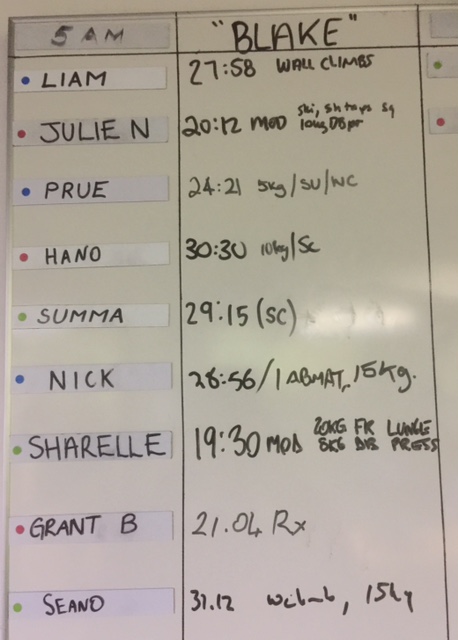 5 AM "BLAKE"
LIAM 27:58 WALL CLIMBS
JULIE N 20:12 MOD ski, sh taps sq
long DB pr
PRUE 24:21 5kg/SU/WC
HANO 30:30 10kg/Sc
SUMMA 29:15 (SC)
NICK 28:56/1 ABMAT, 15kg.
SHARELLE 19:30 MOD 20KG FR LUNGE
8KG DB PRESS
GRANT B 21.04 Rx
SEANO 31.12 15kg